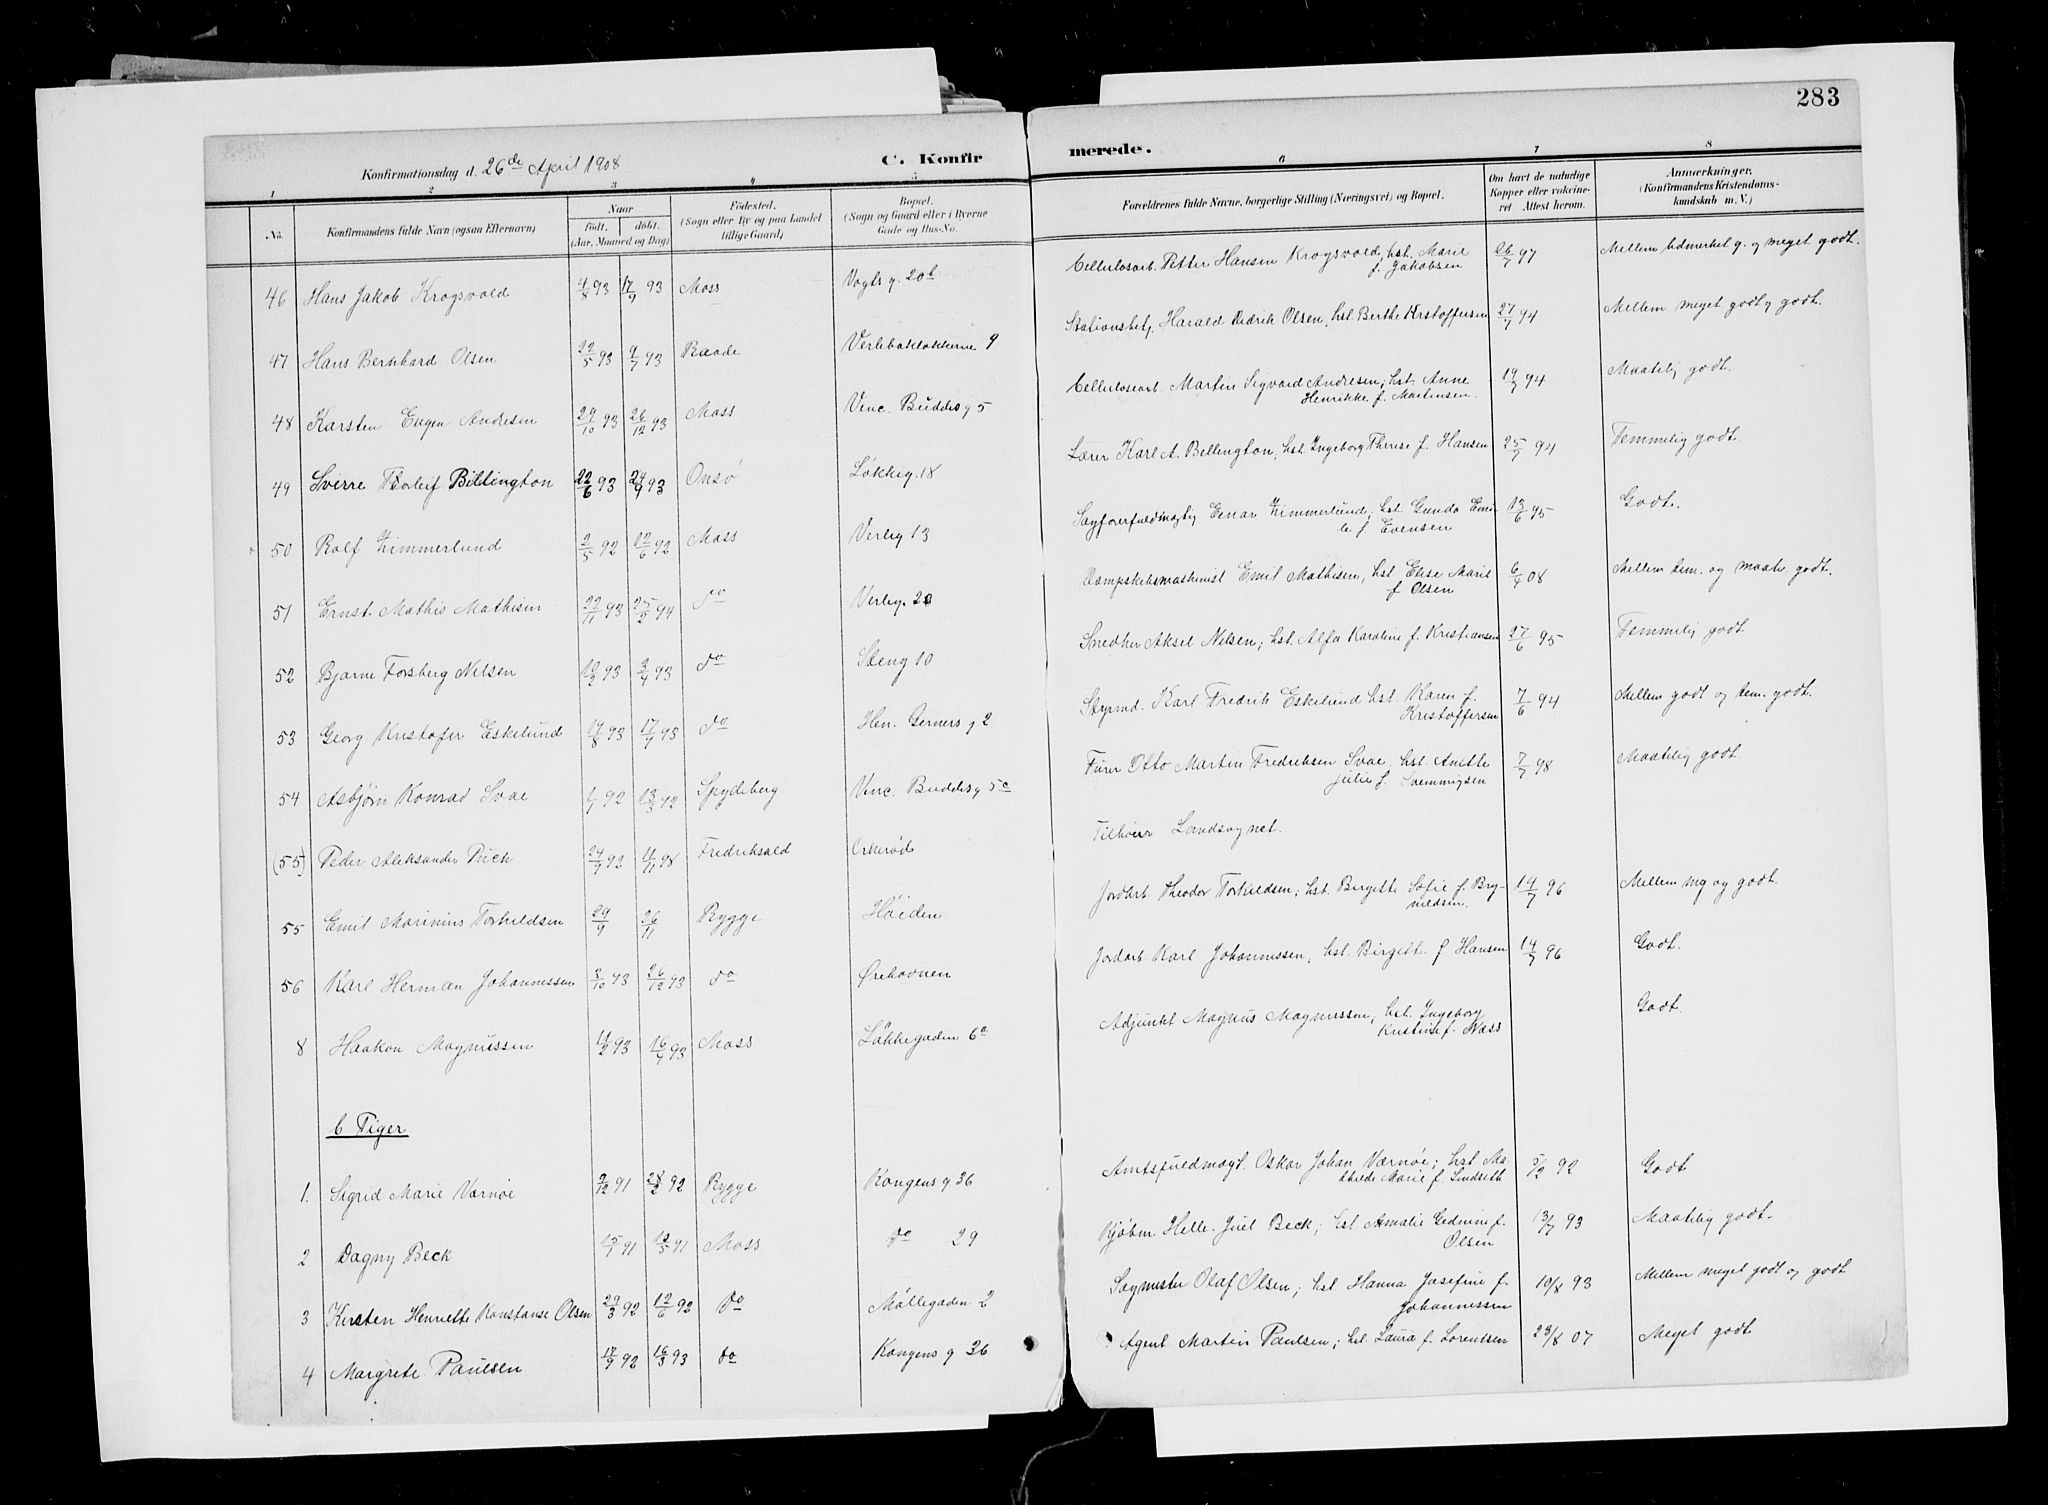 283
Konfirmationsdag d. 26de April 1908
C. Konfir
merede.
1 2 3 4 5 6 7 8
No. Konfirmandens fulde Navn (ogsaa Efternavn) Naar født. døbt. (Aar, Maaned og Dag) Fødested. (Sogn eller By og paa Landet tillige Gaard) Bopæl. (Sogn og Gaard eller i Byerne Gade og Hus-No. Forældrenes fulde Navne, borgerlige Stilling (Næringsvei) og Bopæl. Om havt de naturlige Kopper eller vakcineret. Attest herom. Anmærkninger. (Konfirmandens Kristendomskundskab m. V.)
46 Hans Jakob Krogsvold 4/8 93 17/9 93 Moss Vogts g. 20b Cellulosarb. Petter Hansen Krogsvold, hst. Marie f. Jakobsen 26/7 97 Mellem Udmerket g. og meget godt.
47 Hans Bernhard Olsen 22/5 93 9/7 93 Raade Verlebakløkkerne 9 Stationsbetj. Harald Didrik Olsen, hst. Berthe Kristoffersen 27/7 94 Mellem meget godt og godt.
48 Karsten Eugen Andresen 29/10 93 26/12 93 Moss Venc. Buddes g 5 Cellulosearb Martin Sigvard Andresen; hst. Anne Henrikke f. Martinsen. 19/7 94 Maatelig godt.
49 Sverre Thorleif Billington 22/6 93 24/9 93 Onsø Løkkeg. 18 Lærer Karl A. Bellington, hst. Ingeborg Therese f. Hansen 25/7 94 Temmelig godt.
50 Rolf Zimmerlund 2/5 92 12/6 92 Moss Verleg 13 Sagførerfuldmægtig Einar Zimmerlund; hst. Gunda Emilie f. Evensen 13/6 95 Godt.
51 Ernst Mathis Mathisen 22/11 93 25/2 94 do Verleg. 20 Dampskibsmaskinist Emil Mathisen, hst. Elise Marie f Olsen 6/4 08 Mellem tem. og maatel. godt.
52 Bjarne Forsberg Nelsen 10/2 93 3/4 93 do Steng 10 Snedker Aksel Nelsen; hst. Alfa Karoline f. Kristiansen 27/6 95 Temmelig godt
53 Georg Kristofer Eskelund 17/8 93 17/9 93 do Hen. Gerners g 2 Styrmd. Karl Fredrik Eskelund hst. Karen f. Kristoffersen 7/6 94 Mellem godt og tem. godt.
54 Asbjørn Konrad Svae 1/1 92 13/3 92 Spydeberg Venc. Buddes g 5c Furer Otto Martin Fredriksen Svae, hst. Anette Julie f. 7/7 98 Maatelig godt.
(55) Peder Aleksander Puck 24/9 92 4/11 98 Fredrikshald Orkerød Tilhører Landsognet.
55 Emil Marinius Torkildsen 29/9 26/11 Rygge Høiden Jordarb. Theodor Torkildsen; hst. Birgitte Sofie f. Brynildsen. 14/7 96 Mellem mg og godt.
56 Karl Herman Johannessen 3/10 93 26/12 93 do Ørehavnen Jordarb. Karl Johannessen, hst. Birgitte f Hansen 14/7 96 Godt.
8 Haakon Magnussen 11/2 93 16/4 93 Moss Løkkegaden 6a Adjunkt Magnus Magnussen, hst. Ingeborg Kristine f. Nass Godt.
b Piger
1. Sigrid Marie Værnøe 2/12 91 28/2 92 Rygge Kongens g 36 Amtsfuldmægt. Oskar Johan Værnøe; hst. Mathilde Marie f. Lindseth 5/2 92 Godt
2 Dagny Beck 15/1 91 10/5 91 Moss do 29 Kjøbm. Helle Juel Beck; hst Amalie Gedine f. Olsen 13/7 93 Maatelig godt.
3 Kirsten Henriette Konstanse Olsen 29/3 92 12/6 92 do Møllegaden 2 Sagmester Olaf Olsen; hst Hanna Josefine f. Johannessen 10/8 93 Mellem meget godt og godt
4 Margrete Paulsen 17/9 92 16/3 93 do Kongens g 36 Agent Martin Paulsen; hst Laura f. Lorentsen 23/8 07 Meget godt